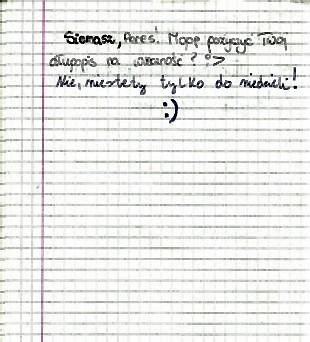 Siemasz, Pareś! Mogę pożyczyć Twój
długopis na własność? :>
Nie, niestety tylko do niedzieli!
:)